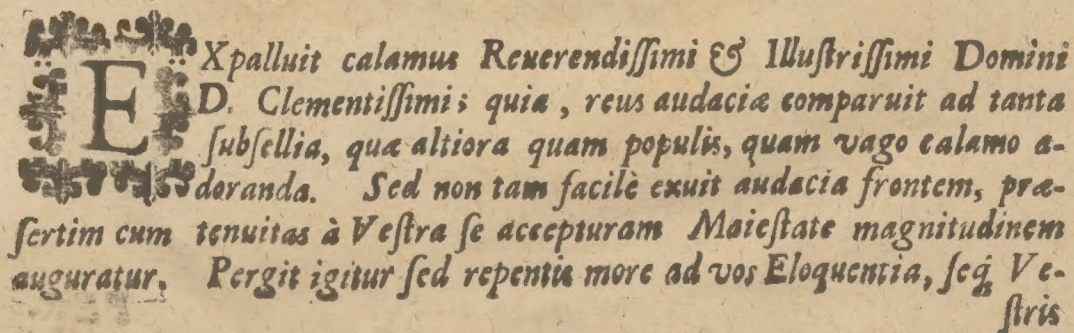 EXpalluit calamus Reuerendiſſimi & Illuſtriſſimi Domini
D. Clementiſſimi; quia, reus audaciæ comparuit ad tanta
ſubſellia, quæ altiora quam populis, quam vago calamo a-
doranda. Sed non tam facilè exuit audacia frontem, præ-
ſertim cum tenuitas à Veſtra ſe accepturam Maieſtate magnitudinem
auguratur. Pergit igitur ſed repentis more ad vos Eloquentia, ſeq́; Ve-
ſtris